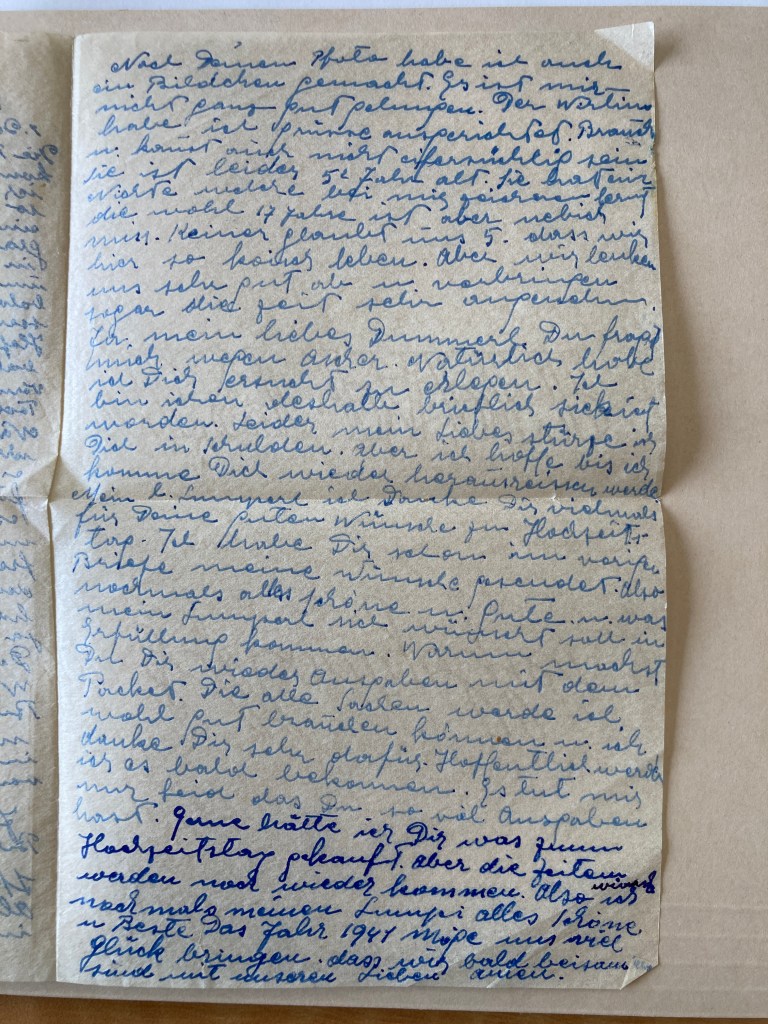 Nach Deinem Photo habe ich auch
ein Bildchen gemacht. Es ist mir
nicht ganz gut gelungen. Der Wirtin
habe ich Grüsse ausgerichtet. Brauchst
u. kannst auch nicht eifersüchtig sein
Sie ist leider 52 Jahr alt. Sie hat eine
Nichte welche bei mir
die wohl 17 Jahre ist aber nebich
mies. Keiner glaubt uns 5. dass wir
hier so koscher leben. Aber wir lenken
uns sehr gut ab u. verbringen
sogar die Zeit sehr angenehm.
Ja. mein liebes Dummerl. Du fragst
mich wegen . Natürlich habe
ich Dich ersucht zu erlegen. Ich
bin schon deshalb brieflich sekkiert
worden. Leider mein Liebes stürze ich
Dich in Schulden. aber ich hoffe bis ich
komme Dich wieder herausreissen werde
Mein l. Lumperl ich Danke Dir vielmals
für Deine guten Wünsche zum Hochzeits-
tag. Ich habe Dir schon im vorigen
Briefe meine Wünsche gesendet. Also
nochmals alles schöne u. Gute u. was
mein Lumperl sich wünscht soll in
Erfüllung kommen. Warum machst
Du Dir wieder Ausgaben mit dem
Packet. Die alle Sachen werde ich
wohl gut brauchen können u. ich
danke Dir sehr dafür. Hoffentlich werde
ich es bald bekommen. Es tut mir
nur leid das Du so viel Ausgaben
hast. Gerne hätte ich Dir was zum
Hochzeitstag gekauft. aber die Zeiten
werden noch wieder kommen. Also ich wünsche
nochmals meinen Lumpi alles schöne
u Beste Das Jahr 1941 Möge uns viel
glück bringen. dass wir bald beisammen
sind mit unseren Lieben amen.